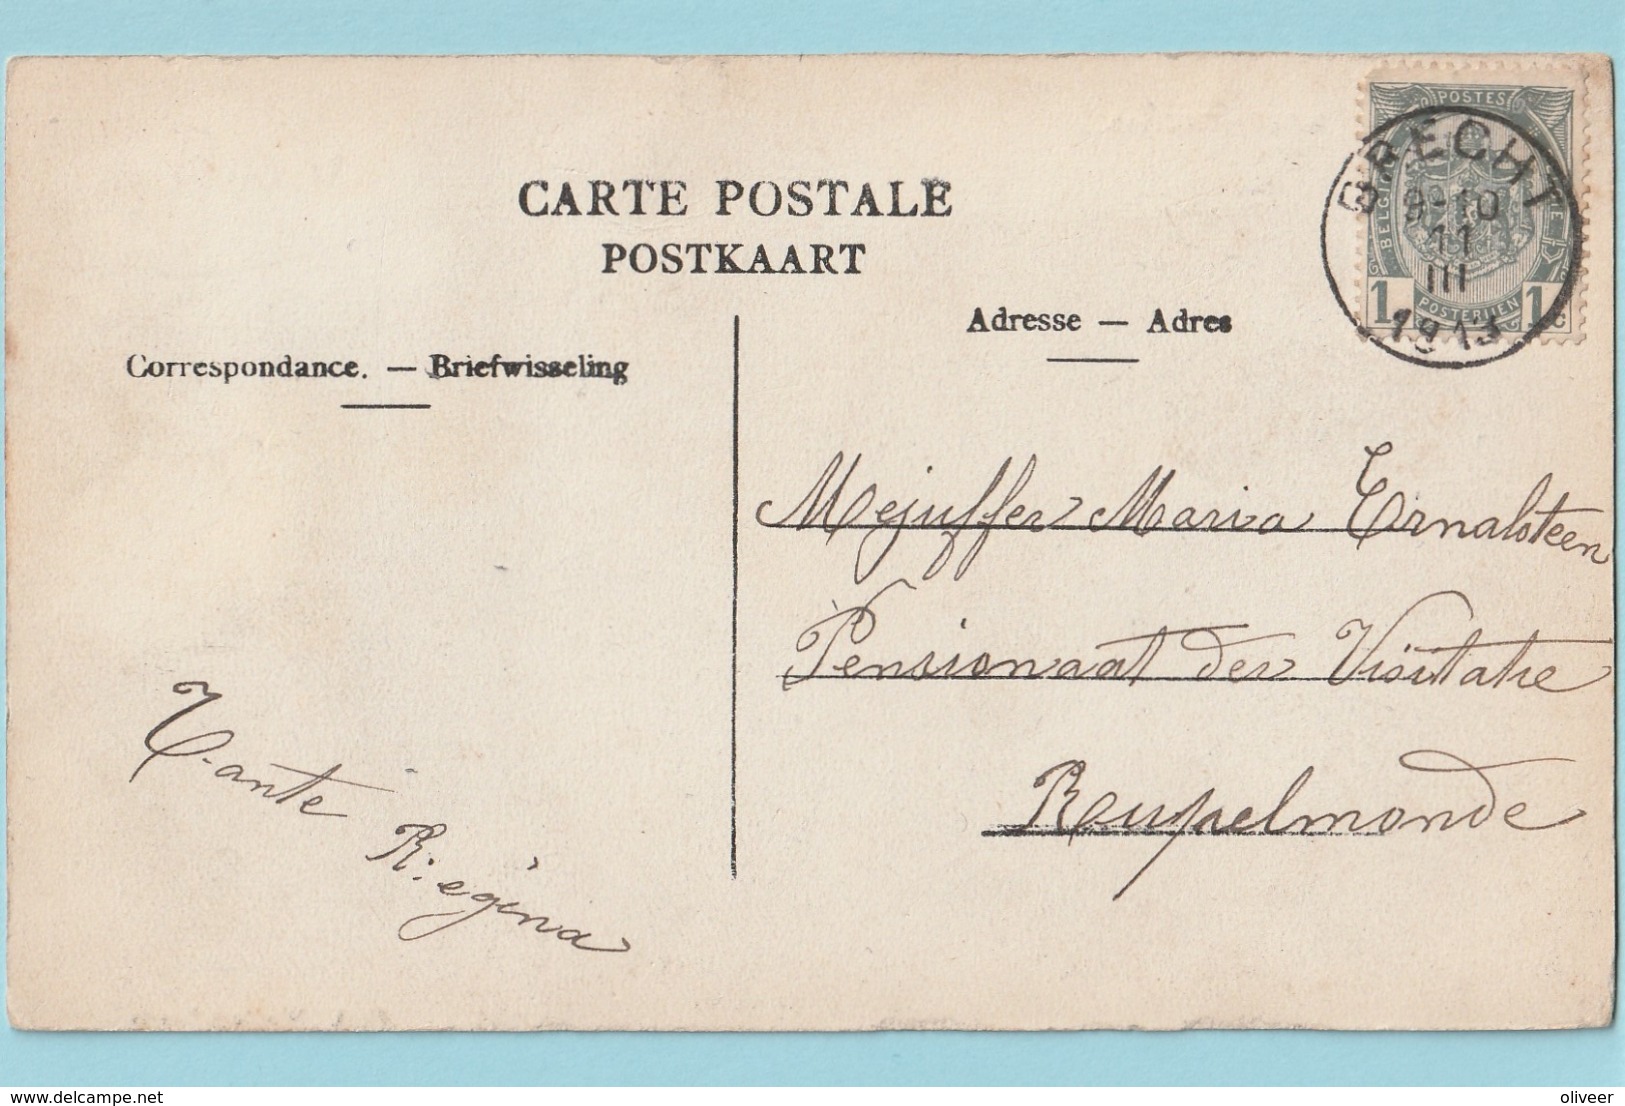 CARTE POSTALE
POSTKAART
Adresse — Adres
Correspondance. — Briefwisseling
POSTES
BELGIQUE
BELGIE
1 1c
POSTERIJEN
BRECHT
9-10
11
III
1913
Mejuffer Maria Ernalsteen
Pensionaat der Visitatie
Rupelmonde
Tante
Regina
delcampe.net
oliveer